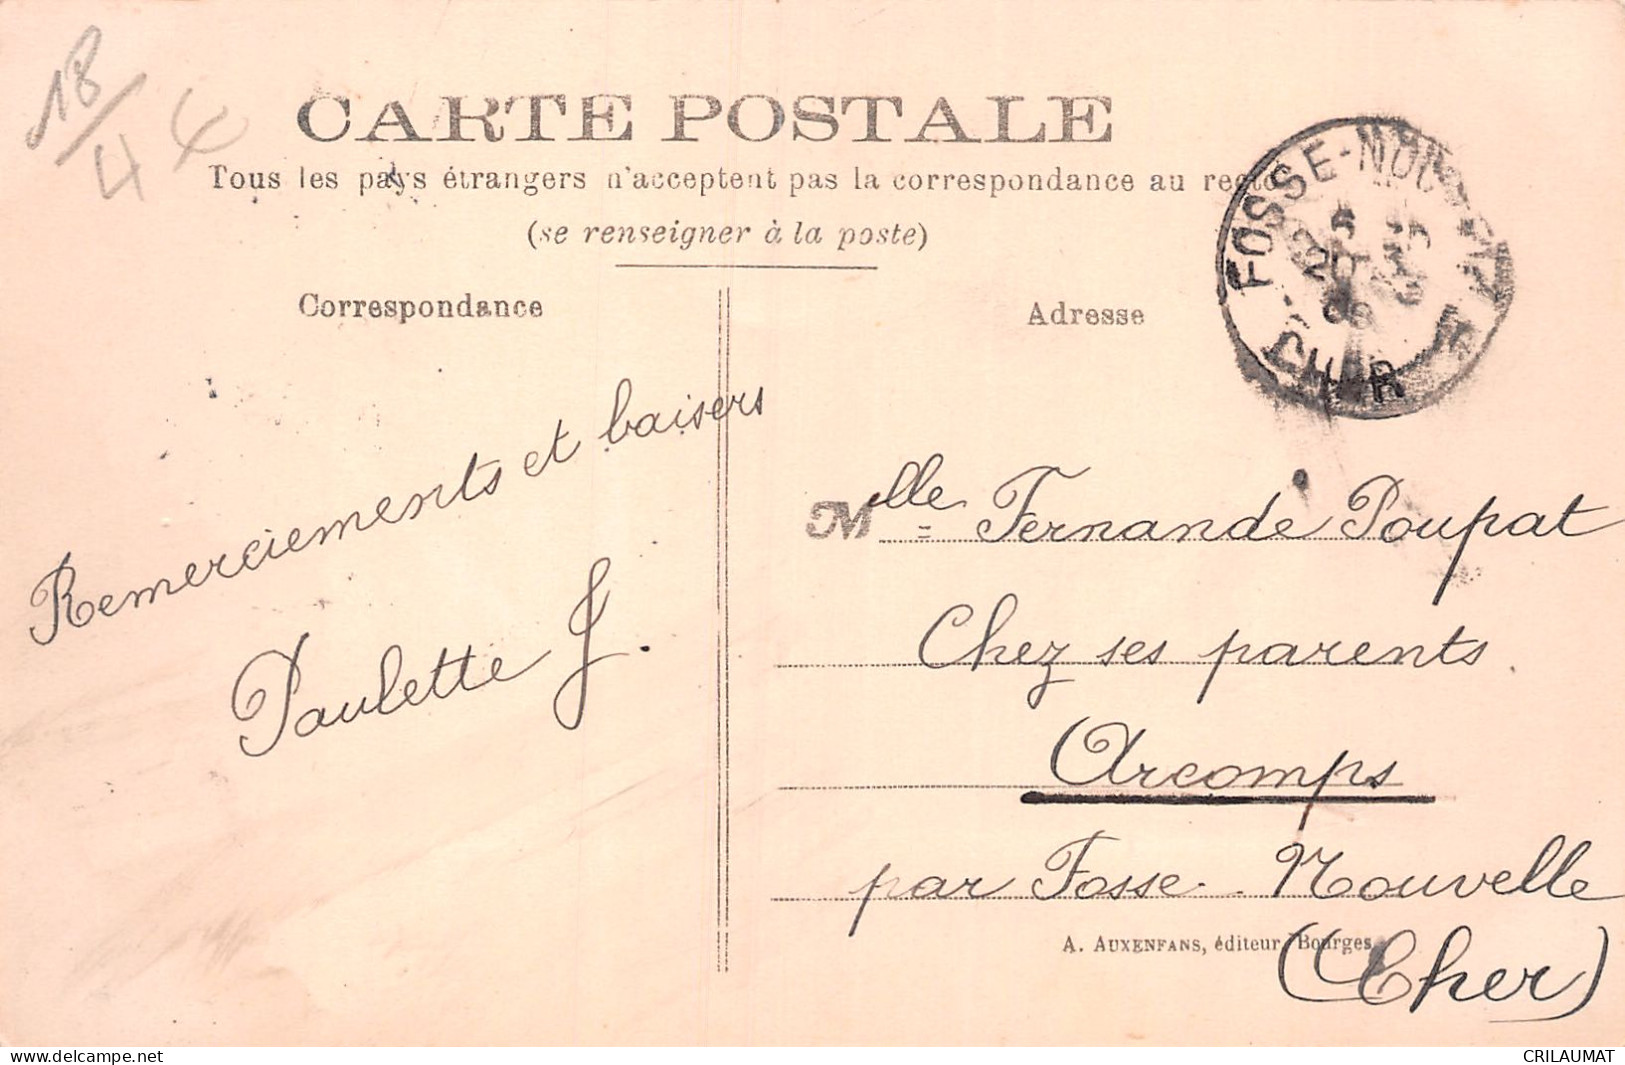 18/4
CARTE POSTALE
Tous les pays étrangers n'acceptent pas la correspondance au recto
(se renseigner à la poste)
Correspondance
Adresse
FOSSE-NOUV
CHER
Remerciements et baisers
Paulette J.
Mlle Fernande Poupat
Chez ses parents
Arcomps
par Fosse-Nouvelle
(Cher)
A. AUXENFANS, éditeur, Bourges
www.delcampe.net
CRILAUMAT